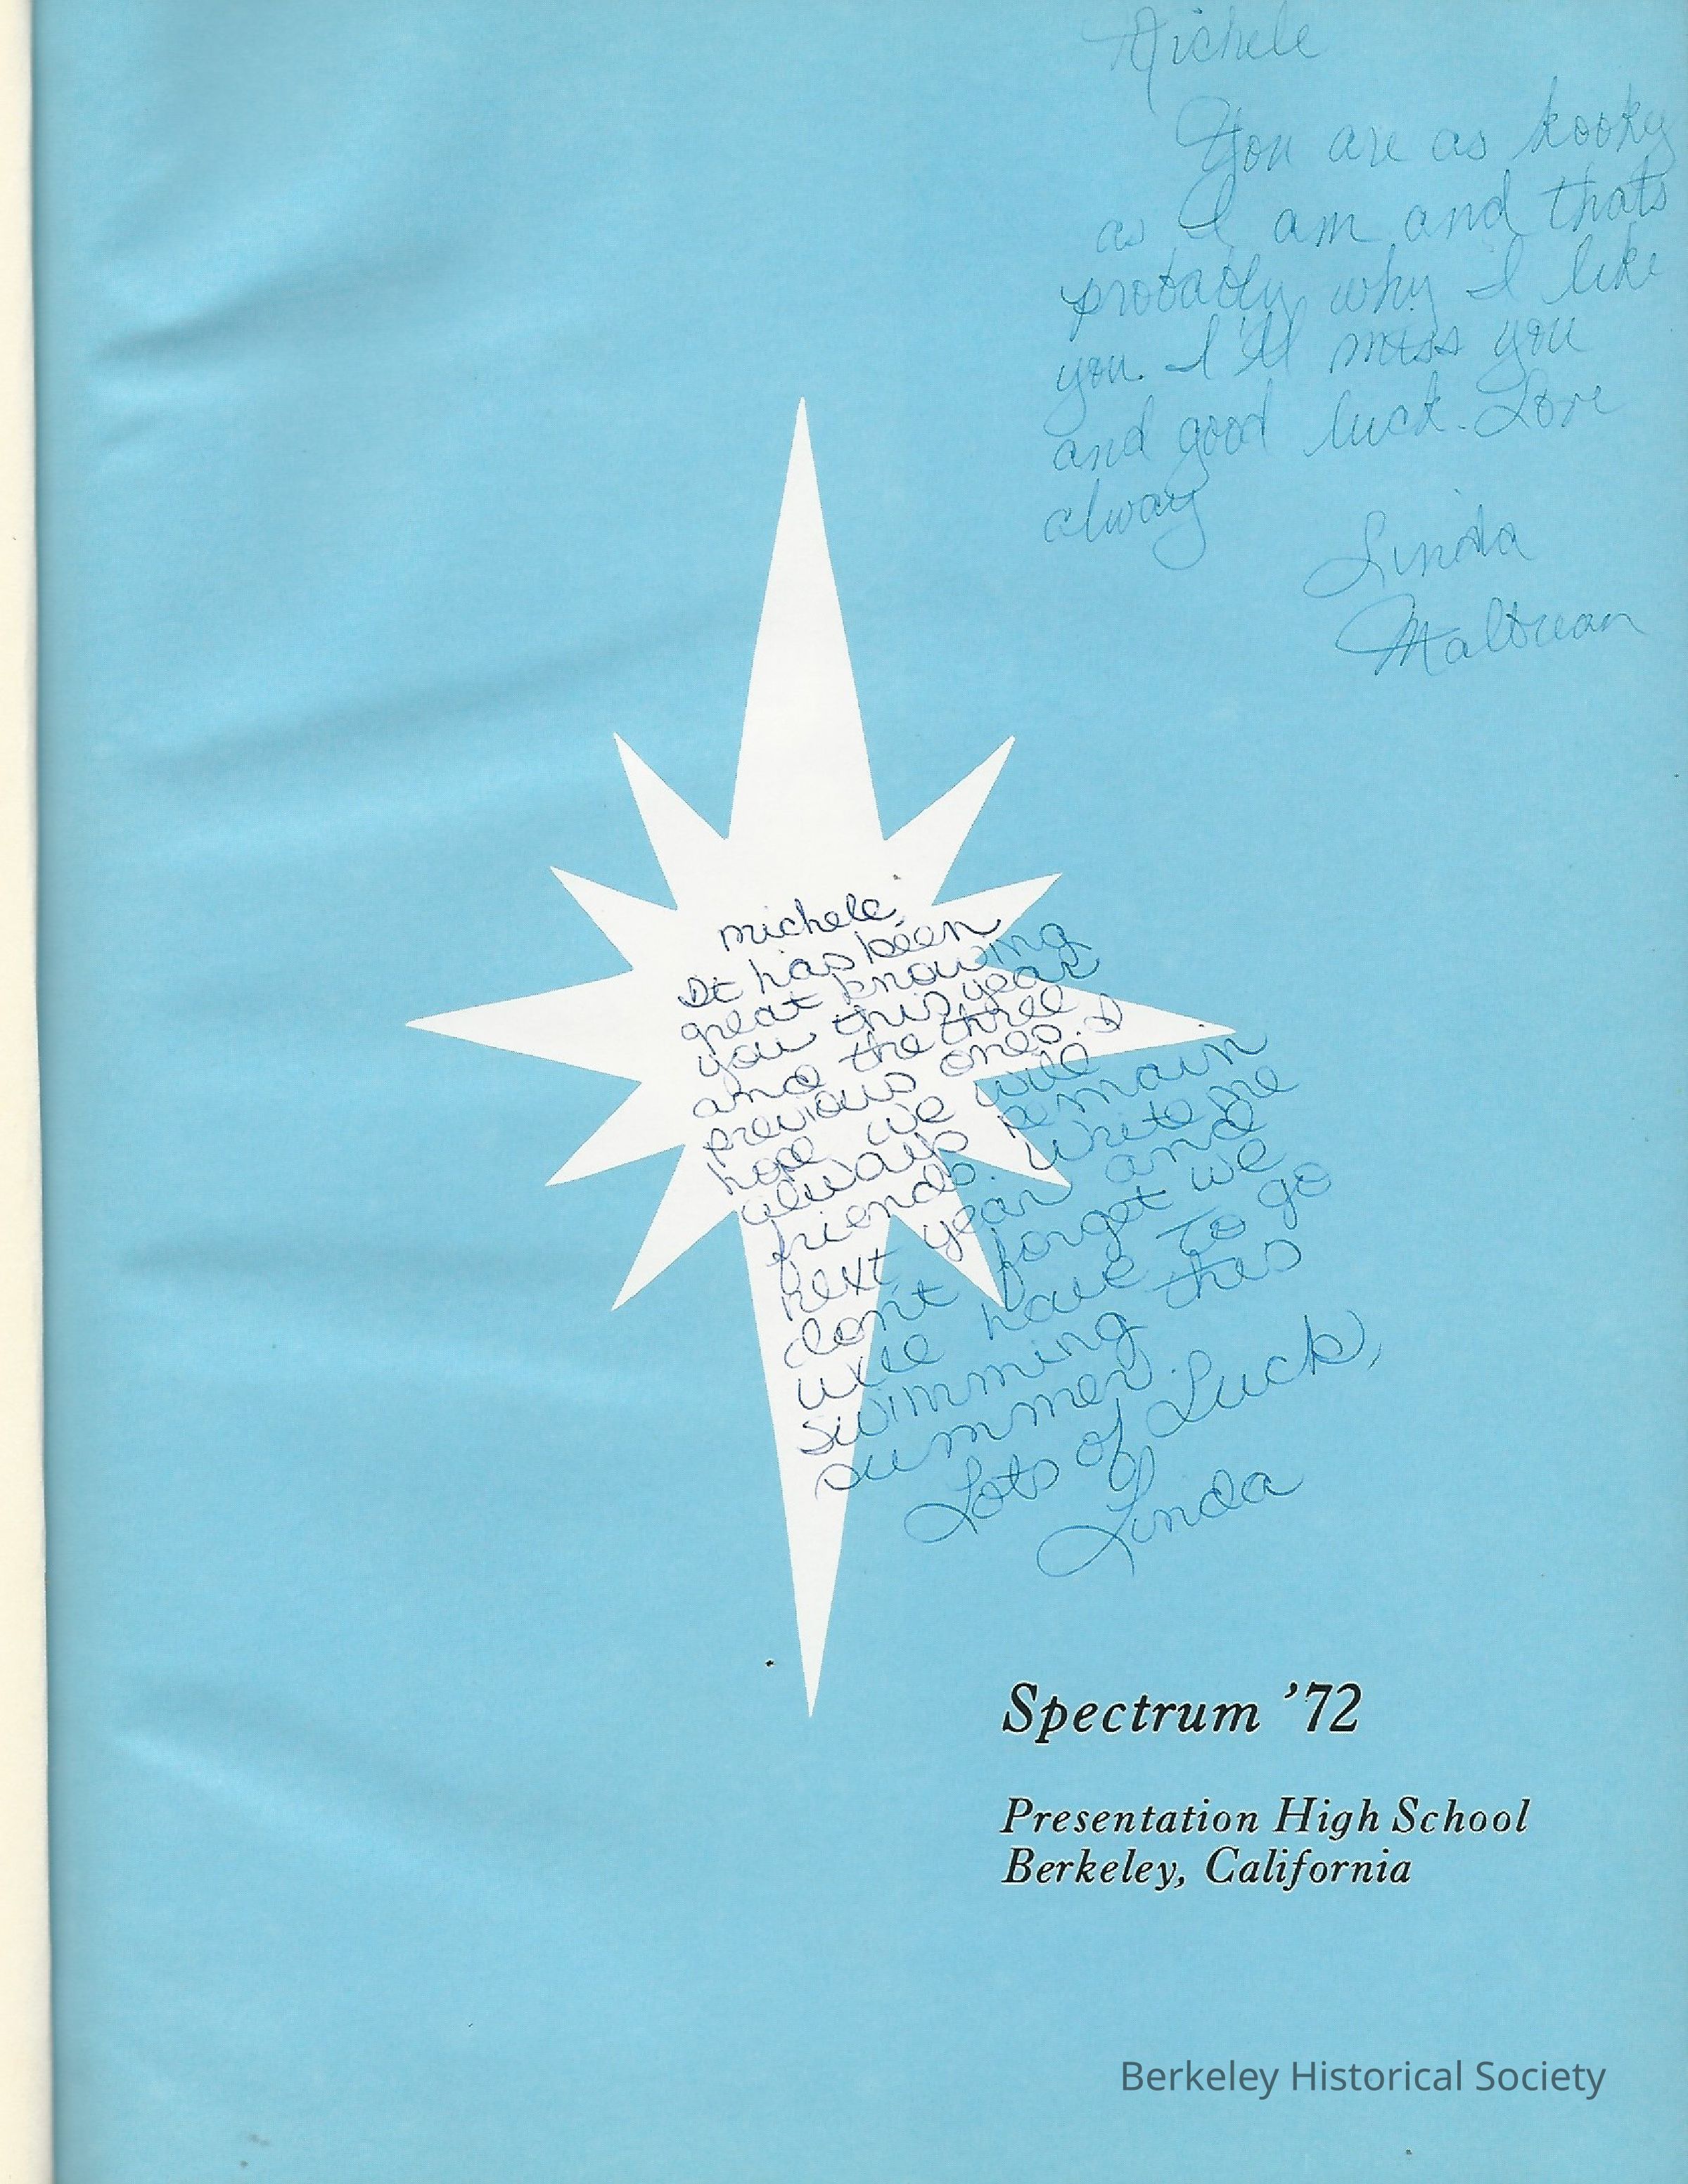 Michele
You are as kooky
as I am and thats
probably why I like
you. I'll miss you
and good luck. Love
alway
Linda
michele,
It has been
great knowing
you this year
and the three
previous ones. I
hope we will
always remain
friends. Write me
next year and
don't forget we
will have to go
swimming this
summer.
Lots of Luck,
Linda
Spectrum '72
Presentation High School
Berkeley, California
Berkeley Historical Society